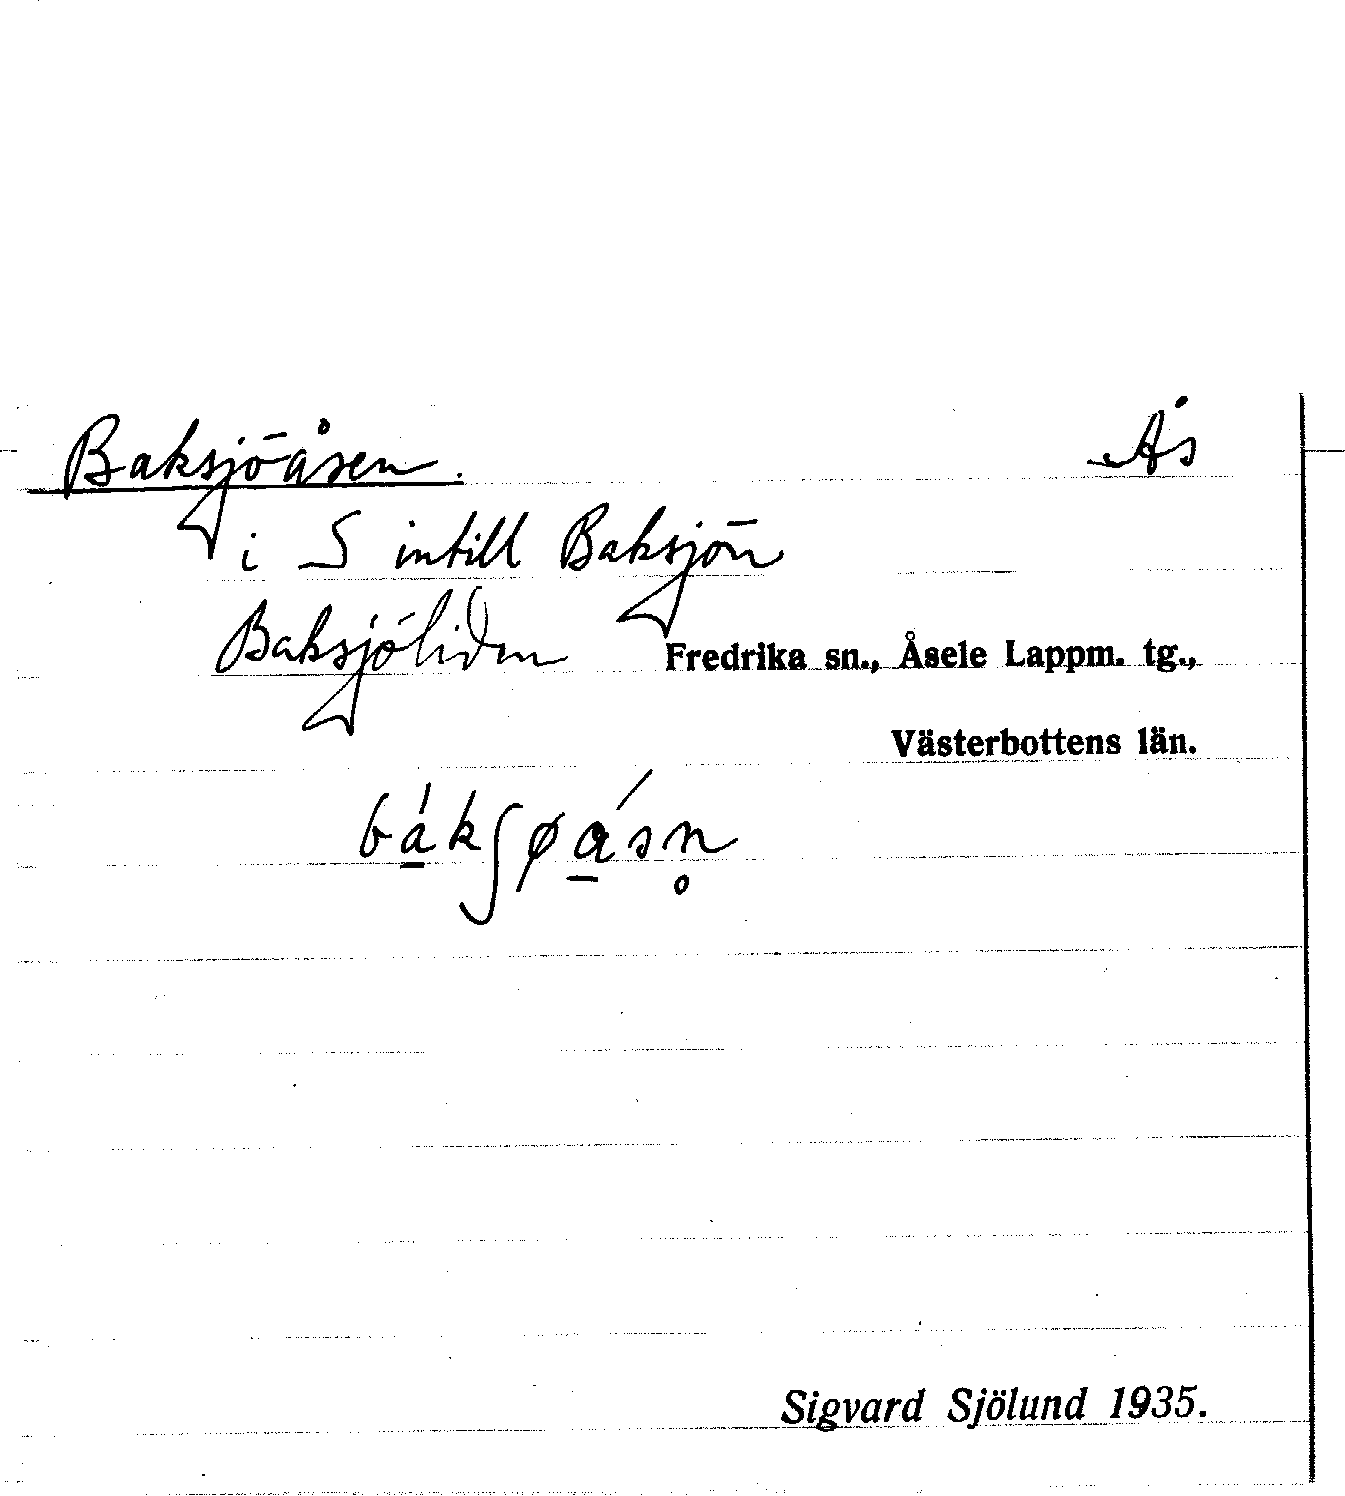 Baksjöåsen. Ås
i S intill Baksjön
Baksjöliden Fredrika sn., Åsele Lappm. tg.,
Västerbottens län.
bá̱kʃøá̱sn̥
Sigvard Sjölund 1935.